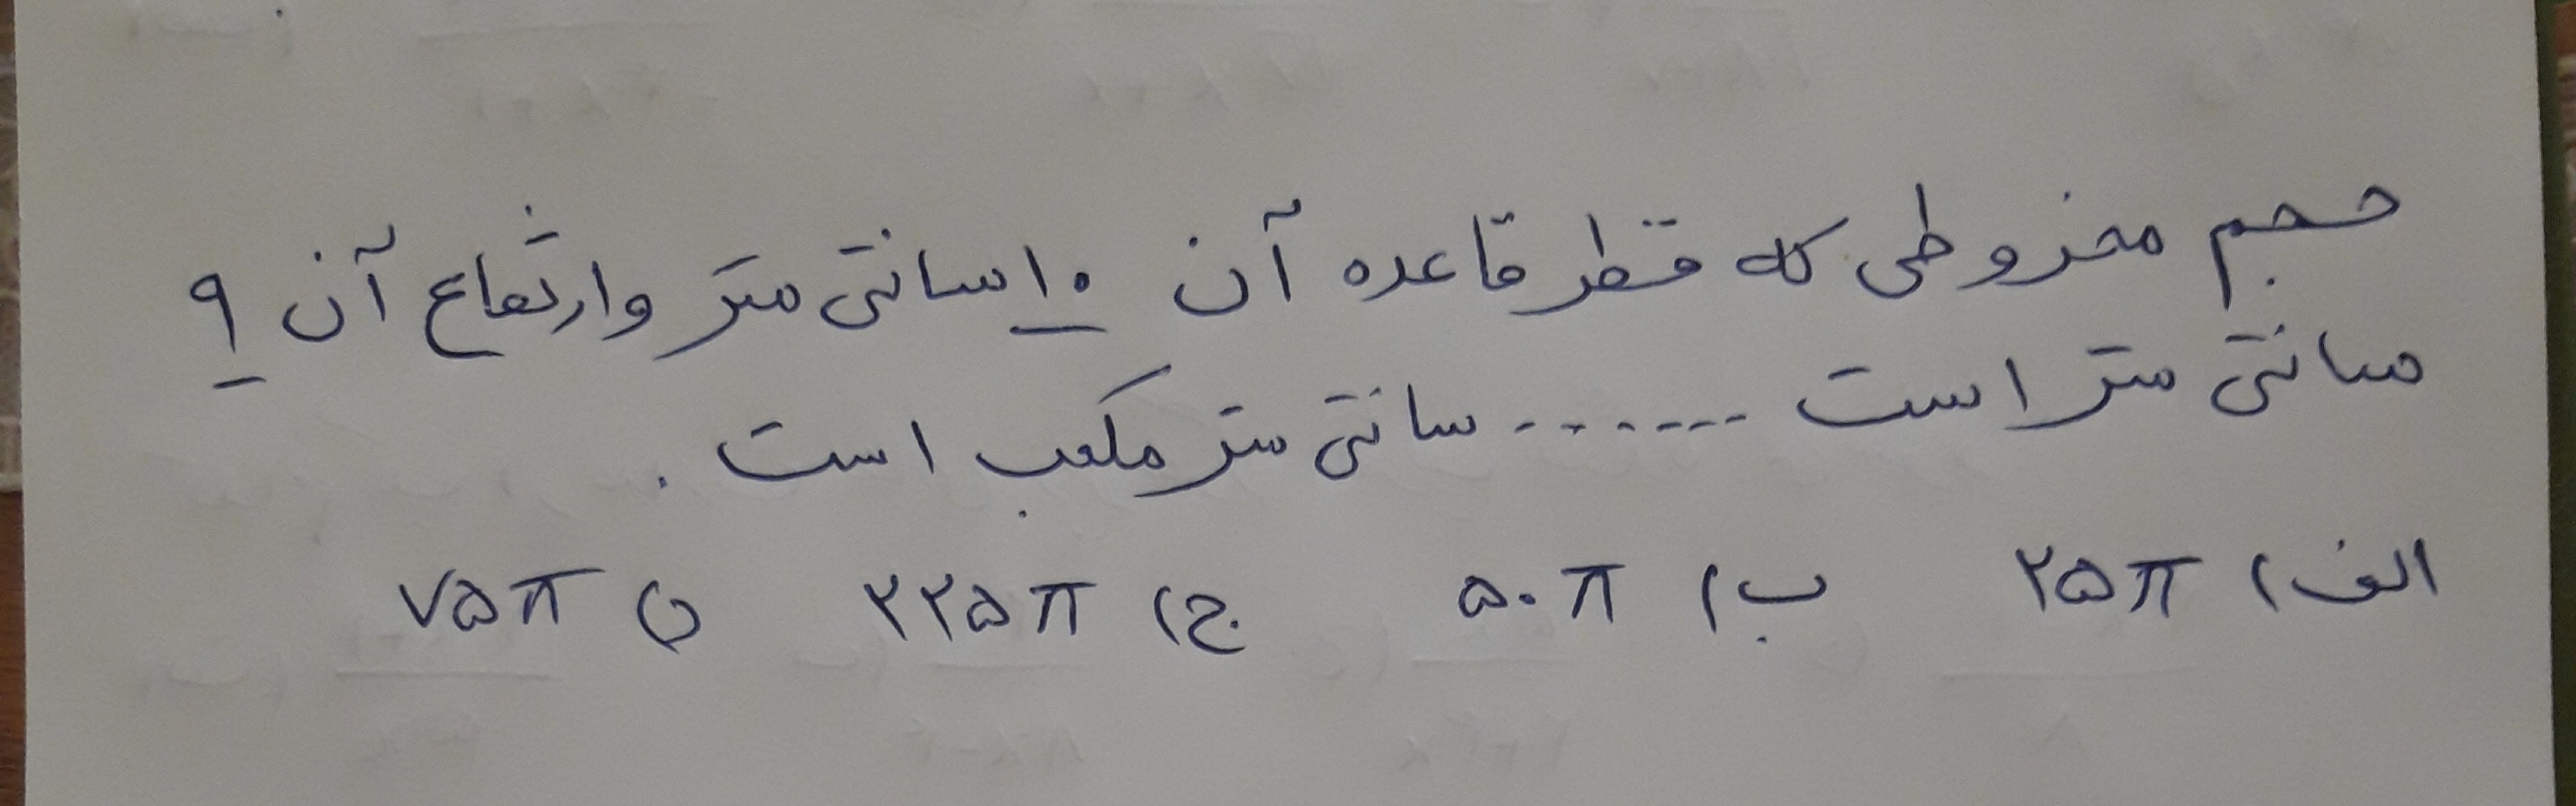 حجم مخروطی که قطر قاعده آن ۱۰ سانتی متر و ارتفاع آن ۹
سانتی متر است ....... سانتی متر مکعب است .
الف) ۲۵π ب) ۵۰π ج) ۲۲۵π د) ۷۵π